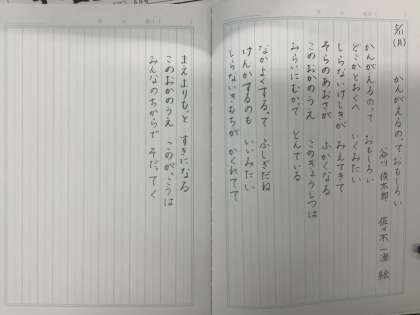 5/11
(月)
かんがえるのっておもしろい
谷川俊太郎 佐々木一澄 絵
かんがえるのって おもしろい
どこかとおくへ いくみたい
しらないけしきが みえてきて
そらのあおさが ふかくなる
このおかのうえ このきょうしつは
みらいにむかって とんでいる
なかよくするって ふしぎだね
けんかするのも いいみたい
しらないきもちが かくれてて
まえよりもっと すきになる
このおかのうえ このがっこうは
みんなのちからで そだってく